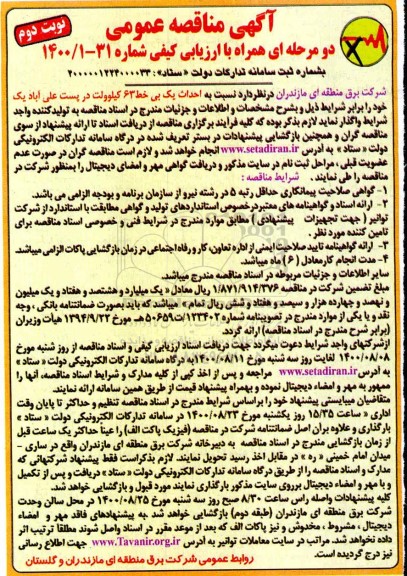 آگهی مناقصه عمومی
نوبت دوم
دو مرحله ای همراه با ارزیابی کیفی شماره ۳۱-۱۴۰۰/۱
بشماره ثبت سامانه تدارکات دولت «ستاد»: ۲۰۰۰۰۰۱۲۲۴۰۰۰۰۳۳
شرکت برق منطقه ای مازندران درنظردارد نسبت به احداث یک بی خط ۶۳ کیلوولت در پست علی آباد یک
خود را برابر شرایط ذیل و بشرح مشخصات و اطلاعات و جزئیات مندرج در اسناد مناقصه به تولیدکننده واجد
شرایط واگذار نماید لازم بذکر بوده که کلیه فرآیند برگزاری مناقصه از دریافت اسناد تا ارائه پیشنهاد از سوی
مناقصه گران و همچنین بازگشایی پیشنهادات در بستر تعریف شده در درگاه سامانه تدارکات الکترونیکی
دولت «ستاد» به آدرس www.setadiran.ir انجام خواهد شد و لازم است مناقصه گران در صورت عدم
عضویت قبلی، مراحل ثبت نام در سایت مذکور و دریافت گواهی مهر و امضای دیجیتال را بمنظور شرکت در
مناقصه را طی نمایند. شرایط مناقصه :
۱- گواهی صلاحیت پیمانکاری حداقل رتبه ۵ در رشته نیرو از سازمان برنامه و بودجه الزامی می باشد.
۲- ارائه اسناد و گواهینامه های معتبر درخصوص استانداردهای تولید و گواهی مطابقت با استاندارد از شرکت
توانیر (جهت تجهیزات پیشنهادی) مطابق موارد مندرج در شرایط فنی و خصوصی اسناد مناقصه برای
تامین کننده مورد نظر.
۳- ارائه گواهینامه تایید صلاحیت ایمنی از اداره تعاون، کار و رفاه اجتماعی در زمان بازگشایی پاکات الزامی میباشد.
۴- مدت انجام کار معادل (۶) ماه میباشد.
سایر اطلاعات و جزئیات مربوطه در اسناد مناقصه مندرج میباشد.
مبلغ تضمین شرکت در مناقصه ۱/۸۷۱/۹۱۴/۳۷۶ ریال معادل «یک میلیارد و هشتصد و هفتاد و یک میلیون
و نهصد و چهارده هزار و سیصد و هفتاد و شش ریال تمام» میباشد که باید بصورت ضمانتنامه بانکی، وجه
نقد و یا یکی از موارد مندرج در تصویبنامه شماره ۱۲۳۴۰۲/ت۵۰۶۵۹هـ مورخ ۱۳۹۴/۹/۲۲ هیأت وزیران
(برابر شرح مندرج در اسناد مناقصه) ارائه گردد.
ازشرکتهای واجد شرایط دعوت میگردد جهت دریافت اسناد ارزیابی کیفی و اسناد مناقصه از روز شنبه مورخ
۱۴۰۰/۰۸/۰۸ لغایت روز سه شنبه مورخ ۱۴۰۰/۰۸/۱۱ به درگاه سامانه تدارکات الکترونیکی دولت «ستاد»
به آدرس www.setadiran.ir مراجعه و پس از اخذ کپی از کلیه مدارک و شرایط اسناد مناقصه، آنها را
ممهور به مهر و امضاء دیجیتال نموده و بهمراه پیشنهاد قیمت از طریق همین سامانه ارائه نمایند.
متقاضیان میبایستی پیشنهاد خود را براساس شرایط مندرج در اسناد مناقصه تنظیم و حداکثر تا پایان وقت
اداری «ساعت ۱۵/۳۵ روز یکشنبه مورخ ۱۴۰۰/۰۸/۲۳ در سامانه تدارکات الکترونیکی دولت «ستاد»
بارگذاری و علاوه بر آن اصل ضمانتنامه شرکت در مناقصه (فیزیک پاکت الف) را عینا حداکثر یک ساعت قبل
از زمان بازگشایی مندرج در اسناد مناقصه به دبیرخانه شرکت برق منطقه ای مازندران واقع در ساری –
میدان امام خمینی «ره» در مقابل اخذ رسید تحویل نمایند. لازم بذکراست فقط پیشنهاد شرکتهائی که
مدارک و اسناد مناقصه را از طریق درگاه سامانه تدارکات الکترونیکی دولت «ستاد» دریافت و پس از تکمیل
و با مهر و امضاء دیجیتال برروی سایت مذکور بارگذاری نمایند مورد قبول و بازگشایی خواهد شد.
کلیه پیشنهادات واصله راس ساعت ۸/۳۰ صبح روز سه شنبه مورخ ۱۴۰۰/۰۸/۲۵ در محل سالن وحدت
شرکت برق منطقه ای مازندران (طبقه دوم) بازگشایی خواهد شد. به پیشنهادهای فاقد مهر و امضاء
دیجیتال، مشروط، مخدوش و نیز پاکات الف که بعد از موعد مقرر در اسناد واصل شوند مطلقا ترتیب اثر
داده نخواهد شد. مراتب در سایت معاملات توانیر به آدرس www.Tavanir.org.ir جهت اطلاع رسانی
نیز درج گردیده است.
روابط عمومی شرکت برق منطقه ای مازندران و گلستان